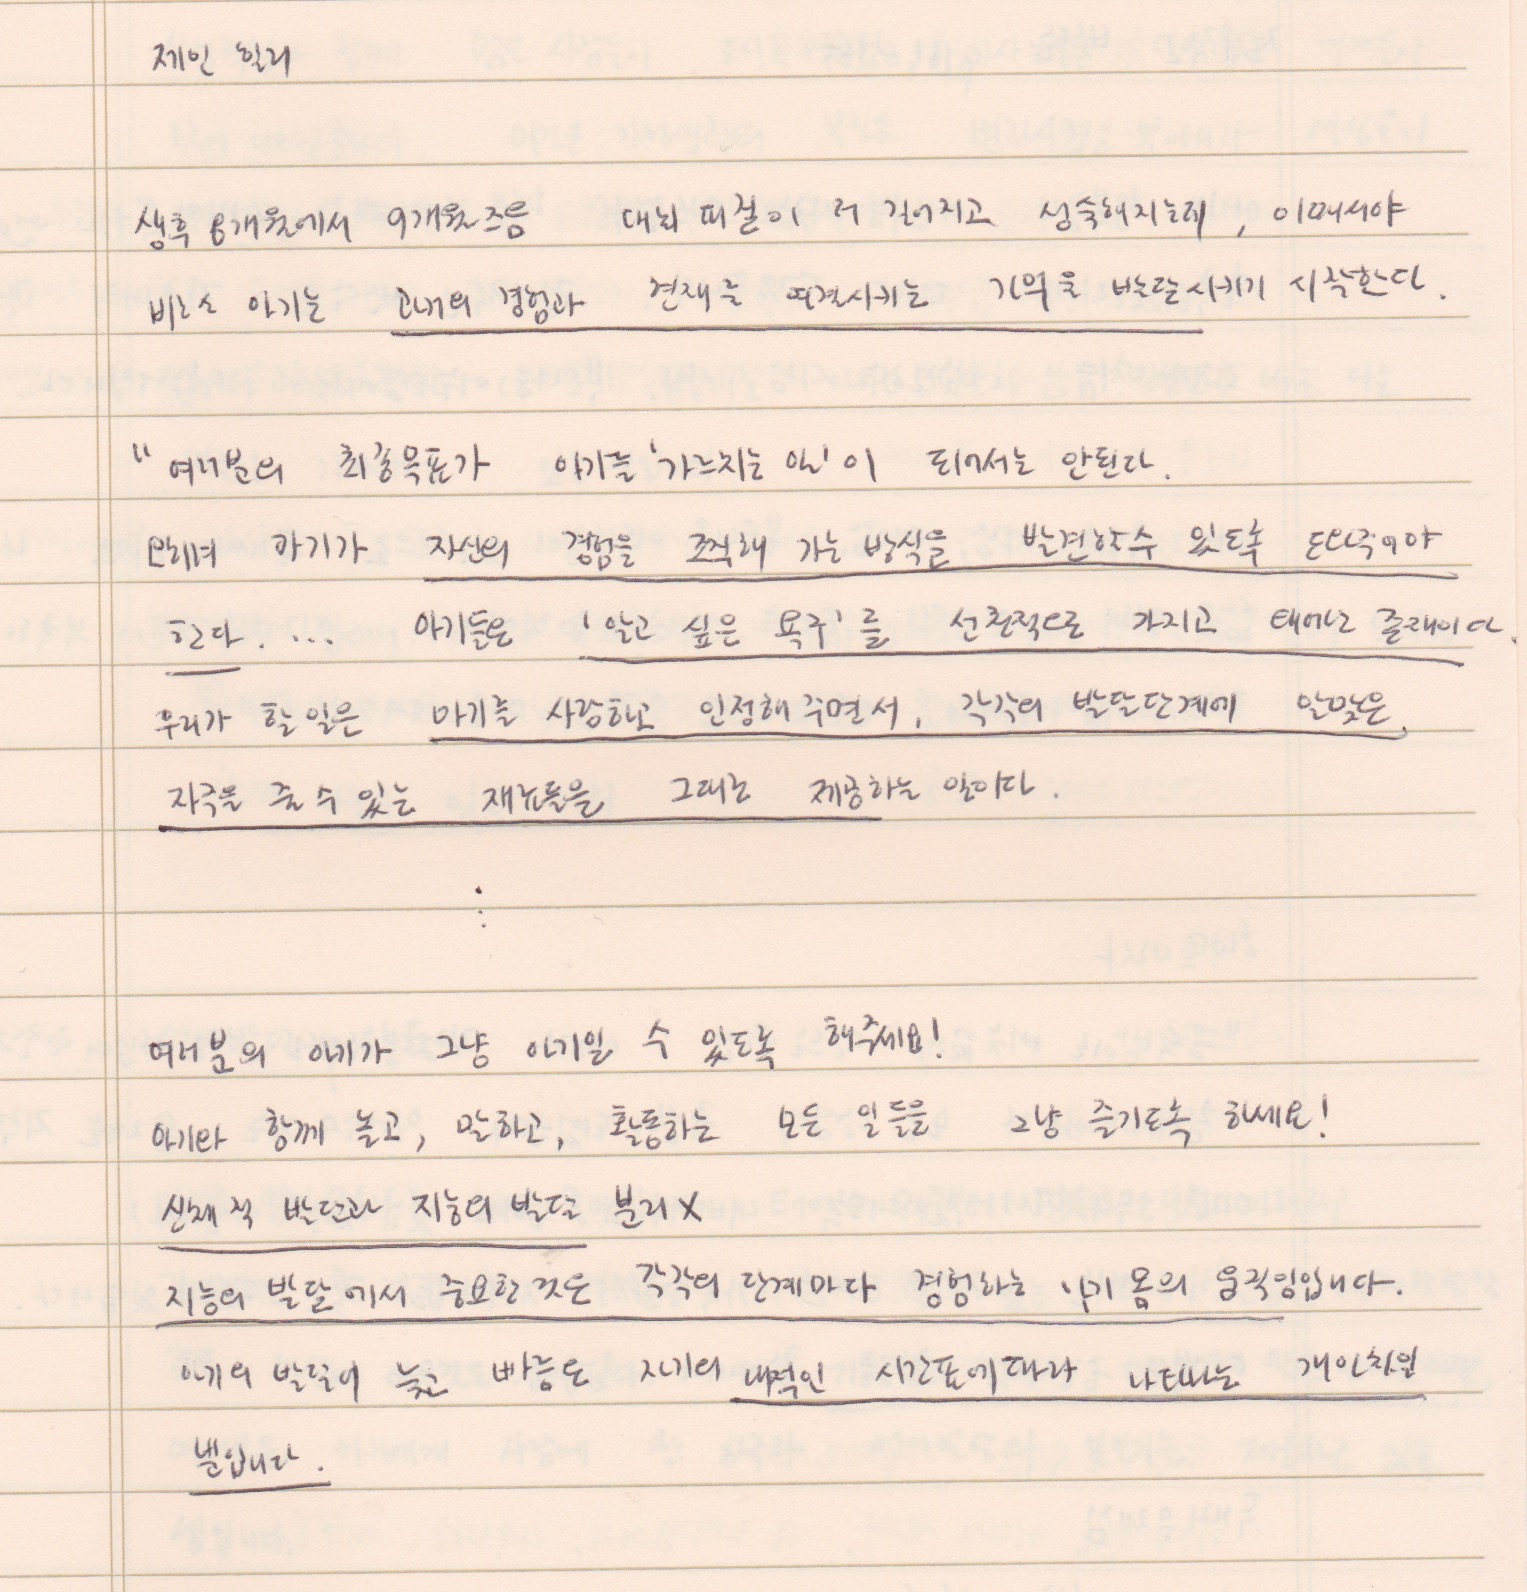 제인 힐리
생후 8개월에서 9개월즈음 대뇌피질이 더 길어지고 성숙해지는데, 이때서야
비로소 아기는 과거의 경험과 현재를 연결시키는 기억을 발달시키기 시작한다.
"여러분의 최종목표가 아기를 '가르치는 일'이 되어서는 안된다.
오히려 아기가 자신의 경험을 조직해 가는 방식을 발견할 수 있도록 도와주어야
한다. ... 아기들은 '알고 싶은 욕구'를 선천적으로 가지고 태어난 존재이다.
우리가 할 일은 아기를 사랑하고 인정해 주면서, 각각의 발달단계에 알맞은
자극을 줄 수 있는 재료들을 그대로 제공하는 일이다.
⋮
여러분의 아기가 그냥 아기일 수 있도록 해주세요!
아기와 함께 놀고, 말하고, 활동하는 모든 일들을 그냥 즐기도록 하세요!
신체적 발달과 지능의 발달 분리 X
지능의 발달에서 중요한 것은 각각의 단계마다 경험하는 아기 몸의 움직임입니다.
아기의 발달이 늦고 빠름은 자기의 내적인 시간표에 따라 나타나는 개인차일
뿐입니다.